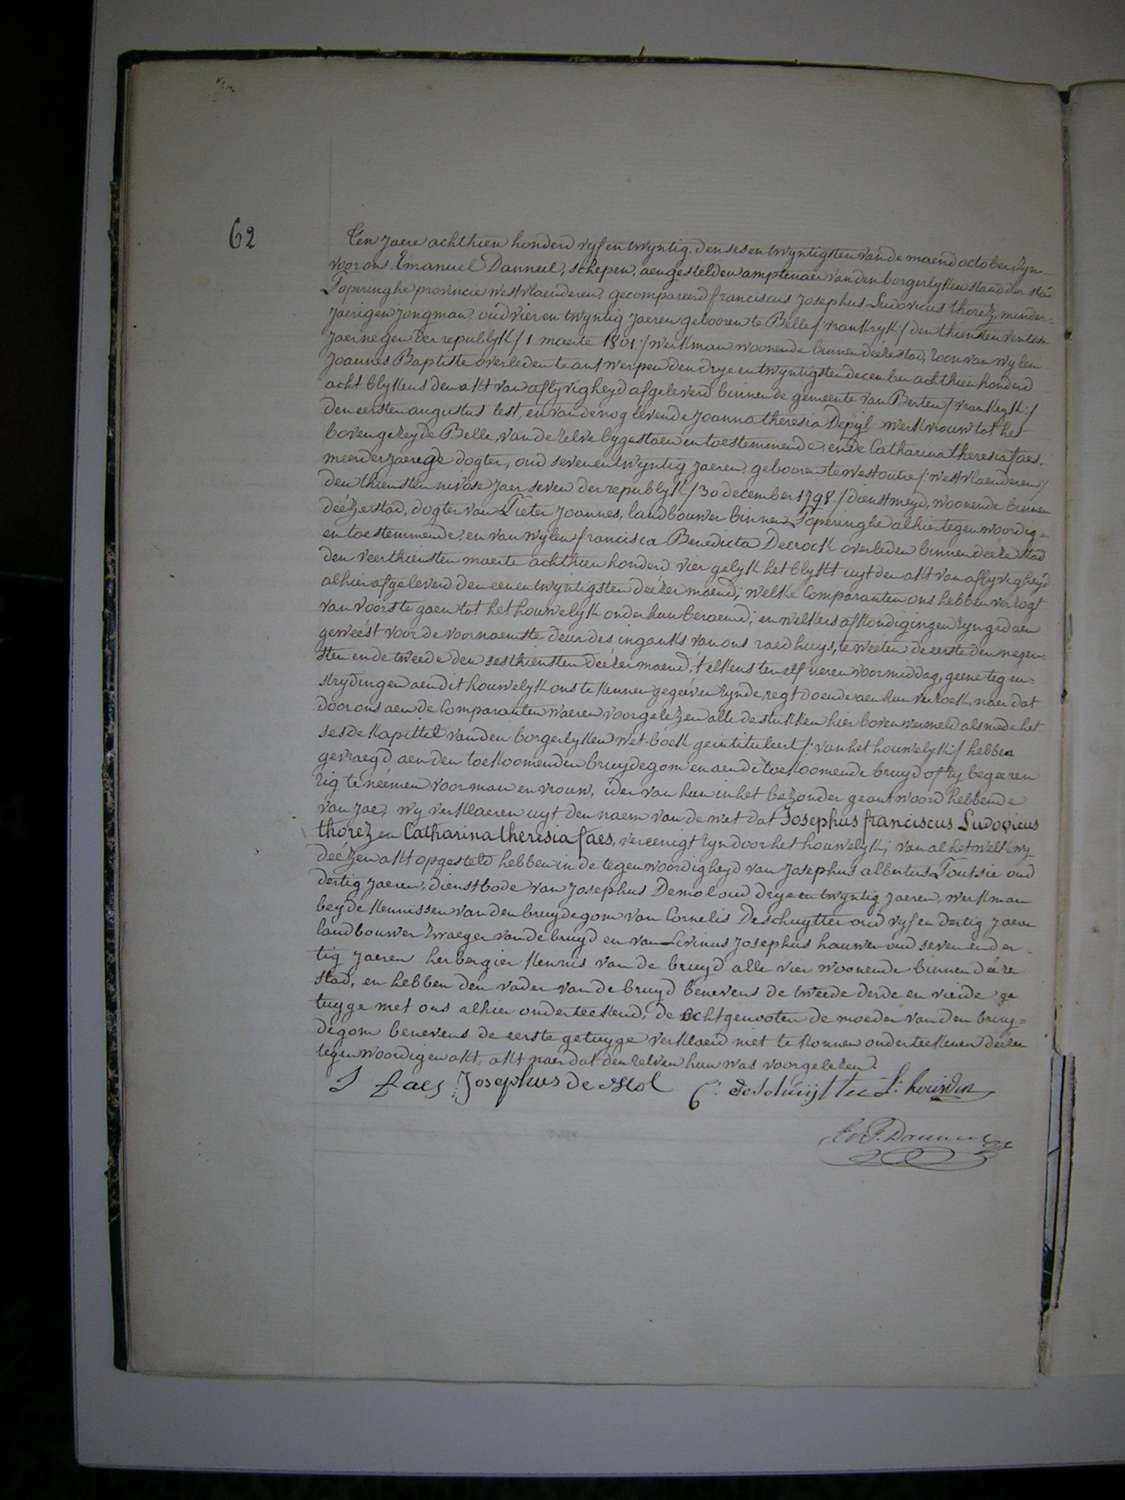 62
Ten jaere achthien honderd vyf en twyntig den ses en twyntigsten van de maend october zyn
voor ons Emanuel Danneel, schepen, aengestelden amptenaer van den borgerlyken stand der stad
Poperinghe provincie westvlaenderen, gecompareerd franciscus Josephus Ludovicus thorez, minder-
jaerigen jongman, oud vier en twyntig jaeren gebooren te Belle /vrankryk/ den thiensten ventose
jaer negen der republyk /1 maerte 1801:/ werkman woonende binnen deeze stad, zoon van wylen
Joannes Baptiste overleden te antwerpen den drye en twyntigsten december achthien honderd
acht blykens den akt van aflyvigheyd afgeleverd binnen de gemeente van Berten /vrankryk:/
den eersten augustus lest, en van de nog levende Joanna theresia Depyl werkvrouw tot het
bovengezeyde Belle, van de zelve bygestaen en toestemmende, ende Catharina theresia faes,
meerderjaerige dogter, oud seven en twyntig jaeren, gebooren te westoutre /:westvlaenderen:/
den thiensten nivose jaer seven der republyk /30 december 1798:/ dienstmeyd, woonende binnen
deéze stad, dogter van Pieter Joannes, landbouwer binnen Poperinghe alhier tegenwoordig
en toestemmende, en van wylen francisca Benedicta Decrock overleden binnen deeze stad
den veerthiensten maerte achthien honderd vier gelyk het blykt uyt den akt van aflyvigheyd
alhier afgeleverd den een en twyntigsten deézer maend; welke Comparanten ons hebben verzogt
van voorts te gaen tot het houwelyk onder hun beraemd; en welkers afkondigingen zyn gedaen
geweést voor de voornaemste deur des ingancks van ons raedhuys, te weéten de eerste den negen-
sten ende tweede den sesthiensten deézer maend, telkens ten elf uren voormiddag, geene tegen-
strydingen aen dit houwelyk ons te kennen gegeéven zynde, regt doende aen hun verzoek, naer dat
door ons aen de Comparanten waeren voorgelézen alle de stukken hier boven vermeld alsmede het
sesde kapittel van den borgerlyken wet-boek geintituleert /:van het houwelyk:/ hebben
gevraegd aen den toekoomenden bruydegom en aen de toekoomende bruyd of zy begeeren
zig te neémen voor man en vrouw, ider van hun in het bezonder geantwoord hebbende
van jae; wy verklaeren uyt den naem van de wet dat Josephus franciscus Ludovicus
thorez en Catharina theresia faes, vereenigt zyn door het houwelyk; van al het welk wy
deézen akt opgesteld hebben in de tegenwoordigheyd van Josephus albertus Toussie oud
dertig jaeren, dienstbode van Josephus Demol oud drye en twyntig jaeren, werkman
beyde kennissen van den bruydegom van Cornelis Deschuytter oud vyf en dertig jaeren
landbouwer zwaeger van de bruyd en van Livinus Josephus houwen oud seven en der-
tig jaeren herbergier kennis van de bruyd alle vier woonende binnen deéze
stad, en hebben den vader van de bruyd benevens de tweede derde en vierde ge
tuyge met ons alhier onderteekend, de echtgenooten de moeder van den bruy-
degom benevens de eerste getuyge verklaerd niet te konnen onderteekenen deézen
tegenwoordigen akt, akt naer dat den zelven hun was voorgelezen.
J faes Josephus de Mol C. deschuijtter L: houwen
E. F. Danneel